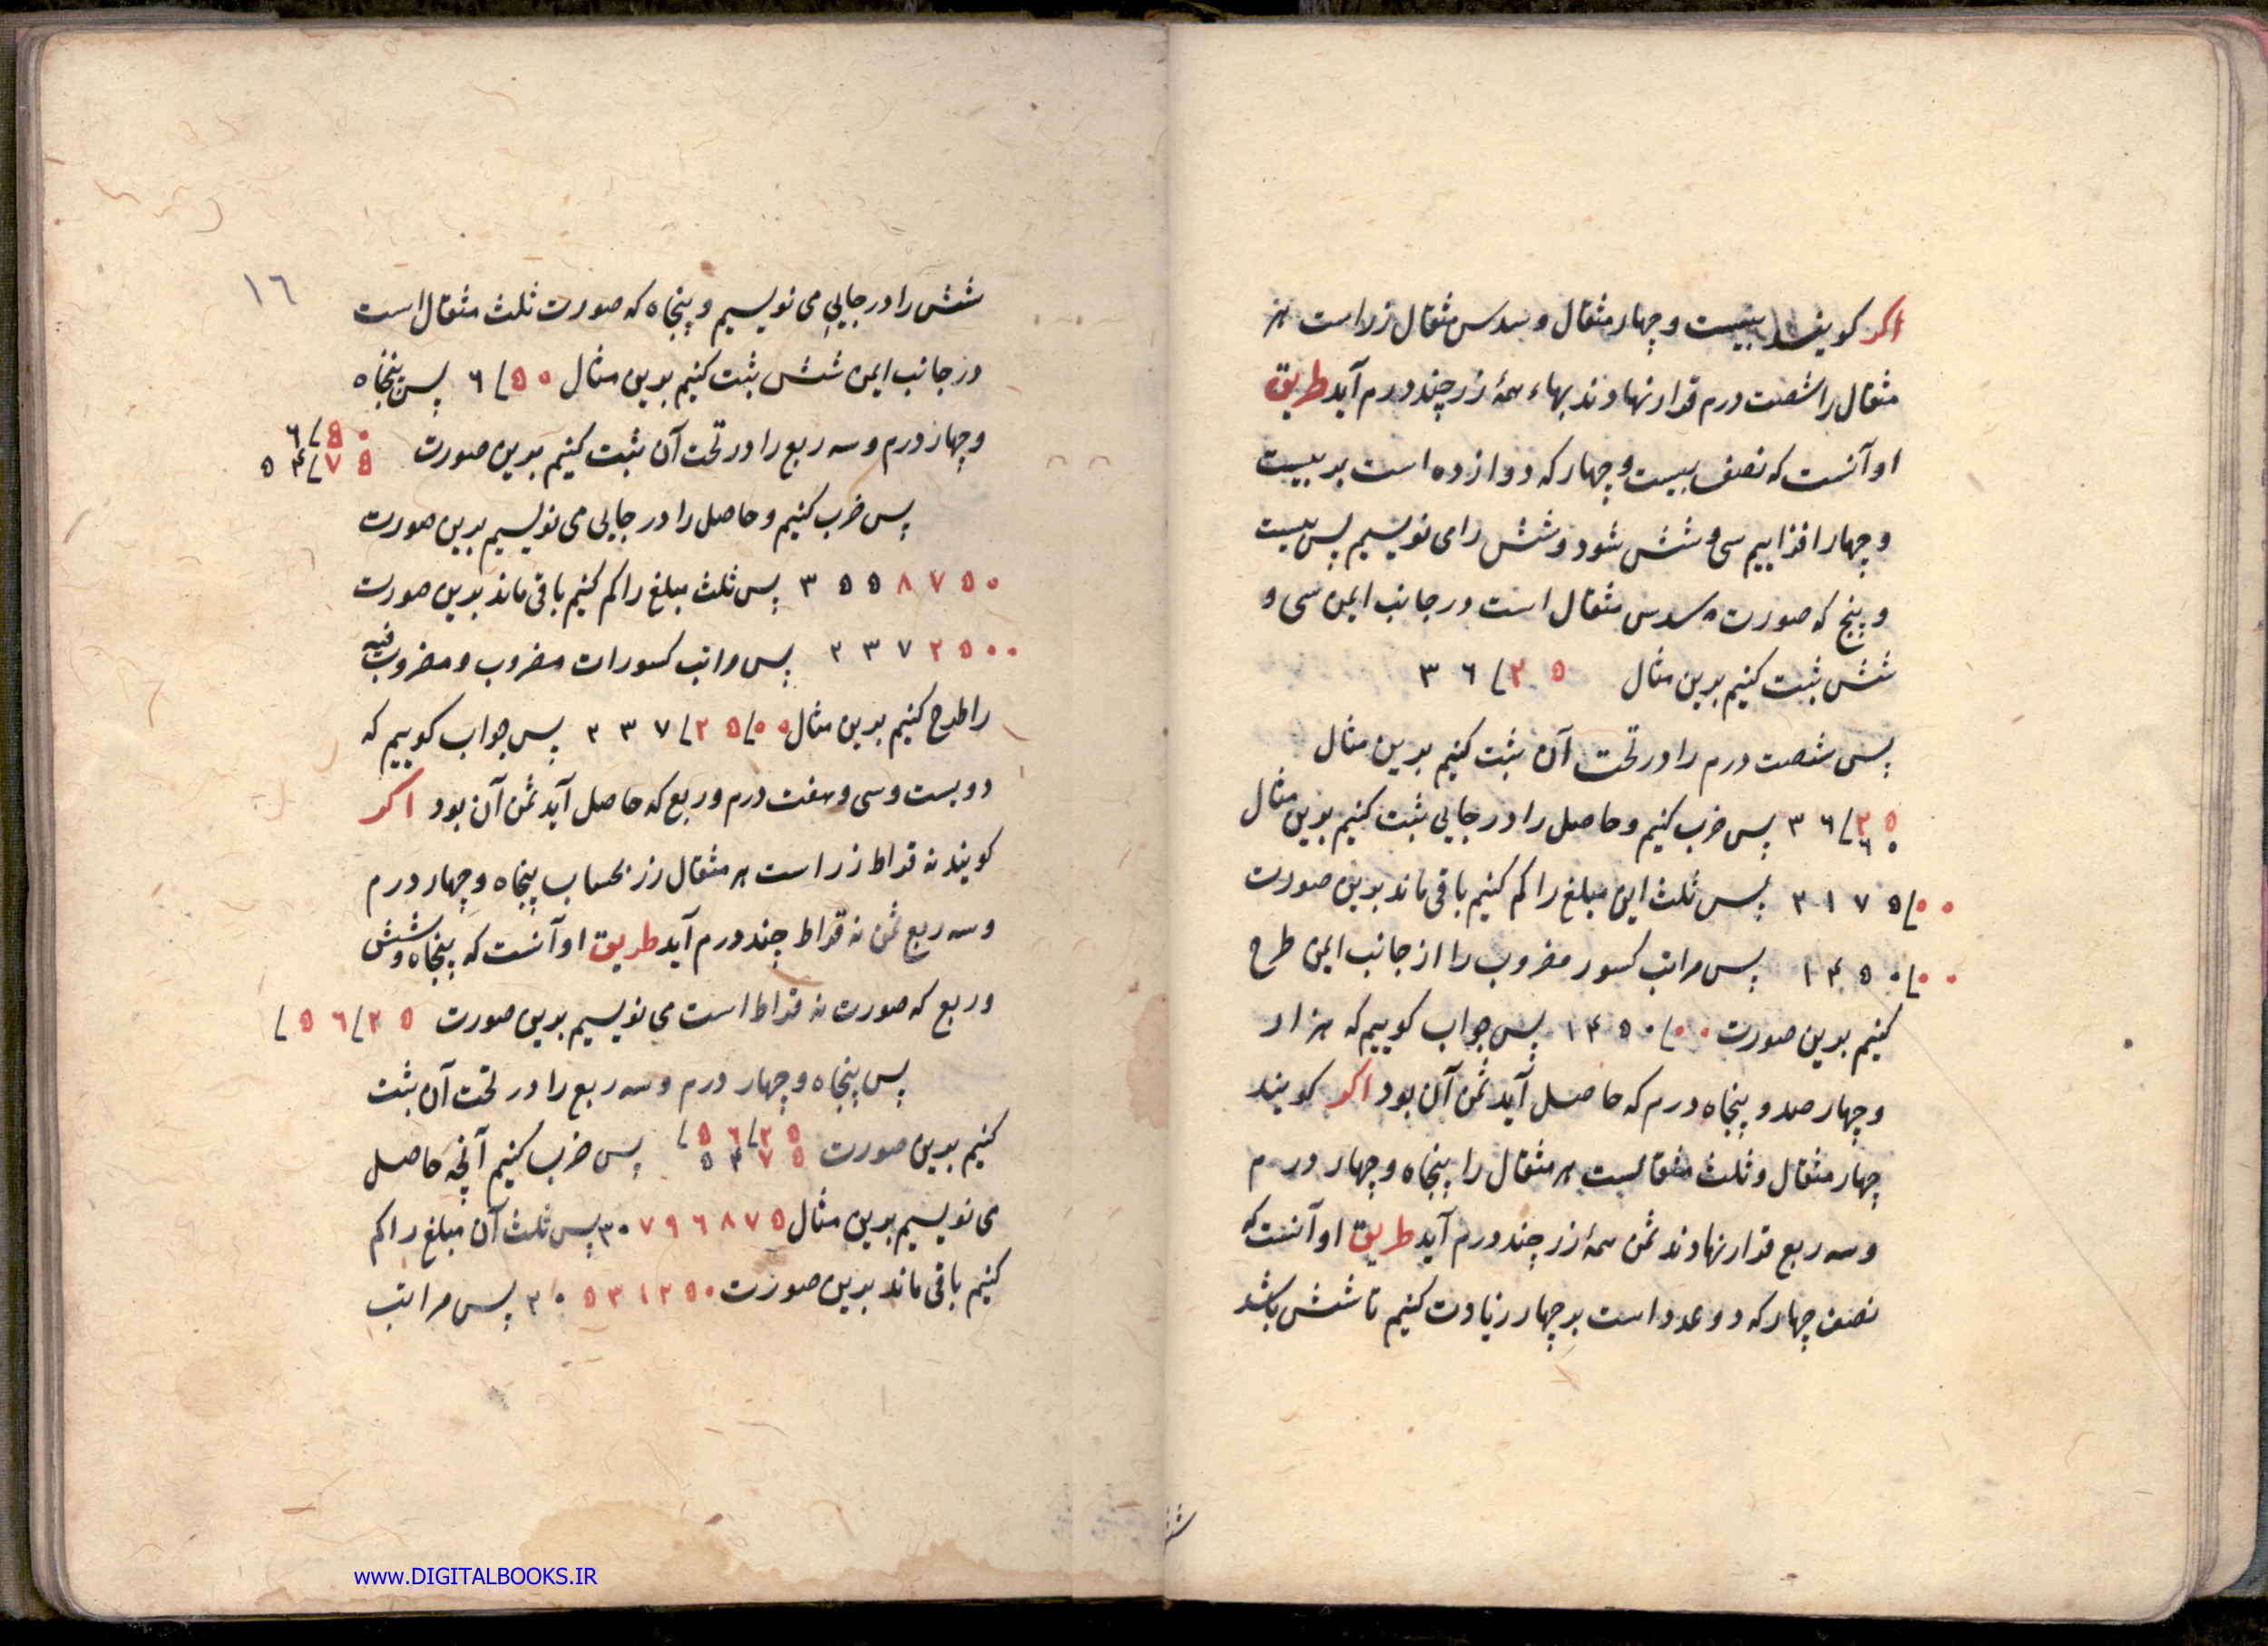 اکر کویند بیست و چهار مثقال و سدس مثقال زر است هر
مثقال را شصت درم قرار نهادند بهاء همهٔ زر چند درم آید طریق
او آنست که نصف بیست و چهار که دوازده است بر بیست
و چهار افزاییم سی و شش شود و شش را می نویسیم پس بیست
و پنج که صورت سدس مثقال است در جانب ایمن سی و
شش ثبت کنیم بدین مثال ۳ ٦ / ۲ ۵
پس شصت درم را در تحت آن ثبت کنیم بدین مثال
۳ ٦ / ۲ ۵ پس ضرب کنیم و حاصل را در جایی ثبت کنیم بدین مثال
٦ ۰
۲ ۱ ۷ ۵ / ۰ ۰ پس ثلث این مبلغ را کم کنیم باقی ماند بدین صورت
۱ ۴ ۵ ۰ / ۰ ۰ پس مراتب کسور مضروب را از جانب ایمن طرح
کنیم بدین صورت ۱ ۴ ۵ ۰ / ۰ ۰ پس جواب کوییم که هزار
و چهار صد و پنجاه درم که حاصل آید ثمن آن بود اکر کویند
چهار مثقال و ثلث مثقالست هر مثقال را پنجاه و چهار درم
و سه ربع قرار نهادند ثمن همهٔ زر چند درم آید طریق او آنست که
نصف چهار که دو عدد است بر چهار زیادت کنیم تا شش باشد
۱٦
شش را در جایی می نویسیم و پنجاه که صورت ثلث مثقال است
در جانب ایمن شش ثبت کنیم بدین مثال ٦ / ۵ ۰ پس پنجاه
و چهار درم و سه ربع را در تحت آن ثبت کنیم بدین صورت ٦ / ۵ ۰
۵ ۴ / ۷ ۵
پس ضرب کنیم و حاصل را در جایی می نویسیم بدین صورت
۳ ۵ ۵ ۸ ۷ ۵ ۰ پس ثلث مبلغ را کم کنیم باقی ماند بدین صورت
۲ ۳ ۷ ۲ ۵ ۰ ۰ پس مراتب کسورات مضروب و مضروب فیه
را طرح کنیم بدین مثال ۲ ۳ ۷ / ۲ ۵ / ۰ ۰ پس جواب کوییم که
دویست و سی و هفت درم و ربع که حاصل آید ثمن آن بود اکر
کویند نه قراط زر است هر مثقال زر بحساب پنجاه و چهار درم
و سه ربع ثمن نه قراط چند درم آید طریق او آنست که پنجاه و شش
و ربع که صورت نه قراط است می نویسیم بدین صورت / ۵ ٦ / ۲ ۵
پس پنجاه و چهار درم و سه ربع را در تحت آن ثبت
کنیم بدین صورت / ۵ ٦ / ۲ ۵ پس ضرب کنیم آنچه حاصل
۵ ۴ ۷ ۵
می نویسیم بدین مثال ۳ ۰ ۷ ۹ ٦ ۸ ۷ ۵ پس ثلث آن مبلغ را کم
کنیم باقی ماند بدین صورت ۲ ۰ ۵ ۳ ۱ ۲ ۵ ۰ پس مراتب
www.DIGITALBOOKS.IR